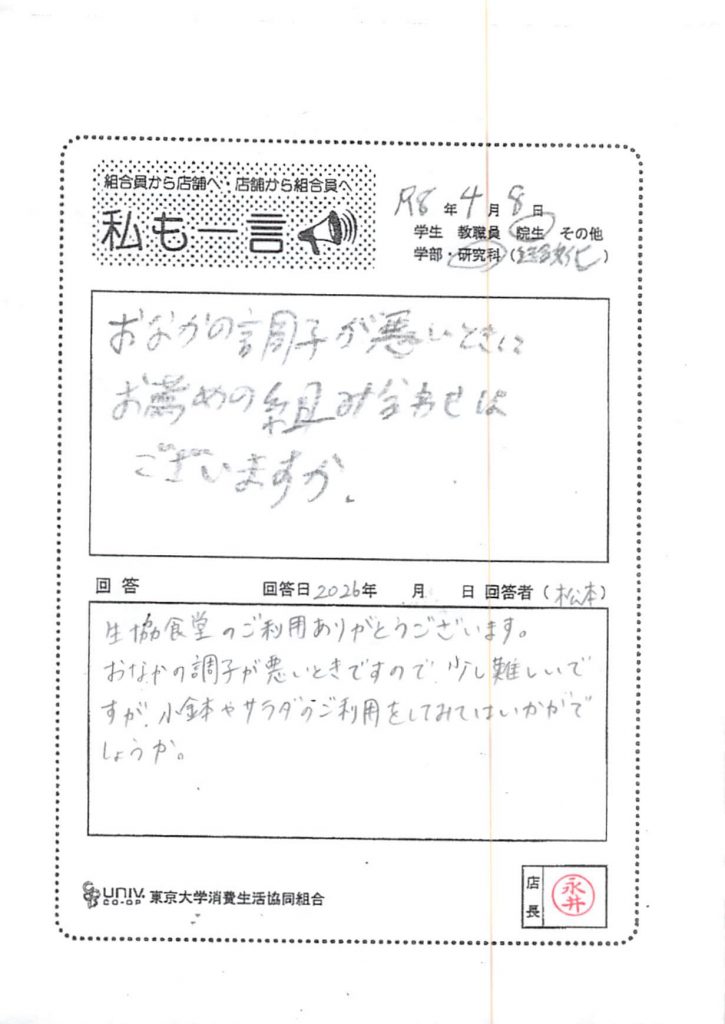 組合員から店舗へ・店舗から組合員へ
私も一言
R8年4月8日
学生 教職員 院生 その他
学部・研究科( )
おなかの調子が悪いときに
お薦めの組み合わせは
ございますか.
回答 回答日2026年 月 日 回答者(松本)
生協食堂のご利用ありがとうございます。
おなかの調子が悪いときですので、少し難しいで
すが、小鉢やサラダのご利用をしてみてはいかがで
しょうか。
UNIV. CO-OP 東京大学消費生活協同組合
店長
永井